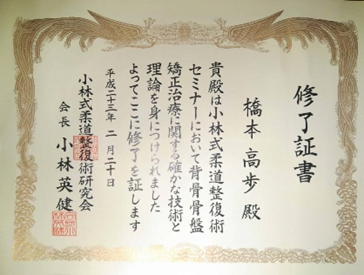 修了証書
橋本高歩殿
貴殿は小林式柔道整復術
セミナーにおいて背骨骨盤
矯正治療に関する確かな技術と
理論を身につけられました
よってここに修了を証します
平成二十三年 二月二十日
小林式柔道整復術研究会
会長 小林英健